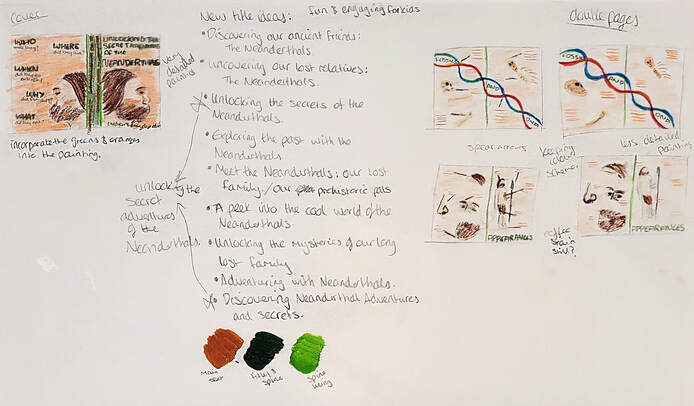 Cover
WHO
WHERE
WHEN
WHY
WHAT
UNLOCKING THE
SECRET ADVENTURES
OF THE
NEANDERTHALS
very
detailed
painting
incorporate the greens & oranges
into the painting.
New title ideas: fun & engaging for kids
• Discovering our ancient friends:
The Neanderthals
• uncovering our lost relatives:
The Neanderthals.
• Unlocking the secrets of the
Neanderthals.
• Exploring the past with the
Neanderthals
• Meet the Neanderthals: our lost
family. / our prehistoric pals
• A peek into the cool world of the
Neanderthals
• Unlocking the mysteries of our long
lost family
• Adventuring with Neanderthals.
• Discovering Neanderthal Adventures
and secrets.
unlocking the
secret
adventures
of the
Neanderthals.
Main
text
title &
spine
Spine
lining
double pages
FOSSILS
AND
DNA
FOSSILS
AND
DNA
spear arrows
keeping
colour
scheme?
less detailed
painting
APPEARANCES
coffee
stain
still?
APPEARANCES